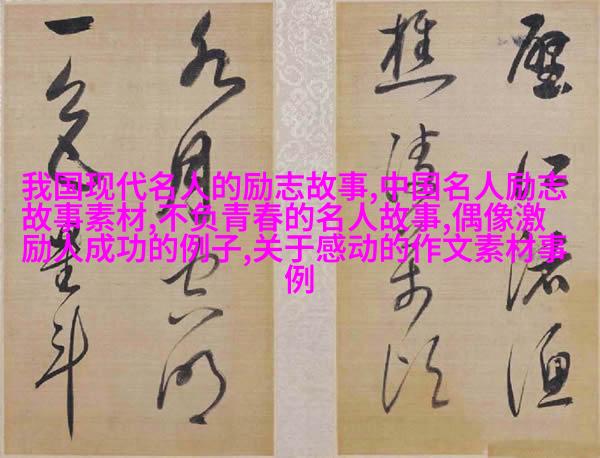 我国现代名人的励志故事,中国名人励志
故事素材,不负青春的名人故事,偶像激
励人成功的例子,关于感动的作文素材事
例
渚渔
樵清
水月明
一色星斗